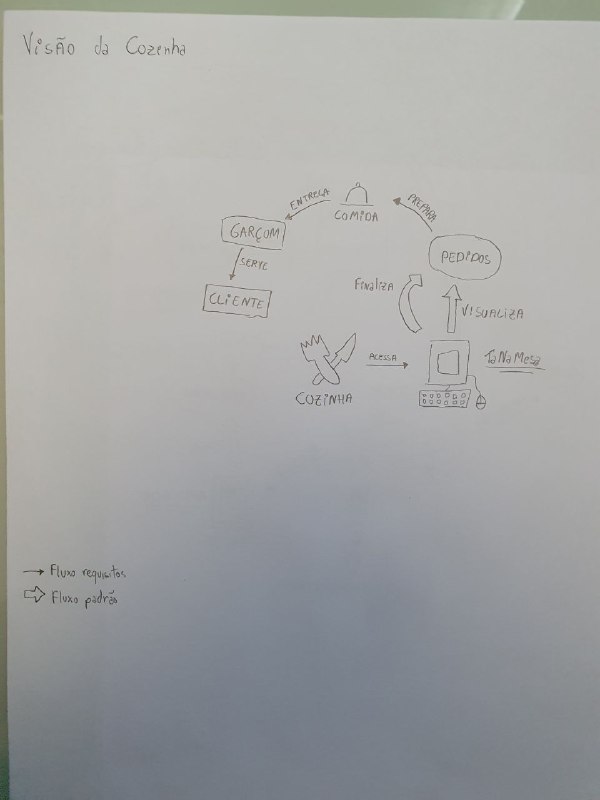 Visão da Cozinha
ENTREGA
COMIDA
PREPARA
GARÇOM
SERVE
CLIENTE
PEDIDOS
Finaliza
VISUALIZA
ACESSA
TaNaMesa
COZINHA
Fluxo requisitos
Fluxo padrão